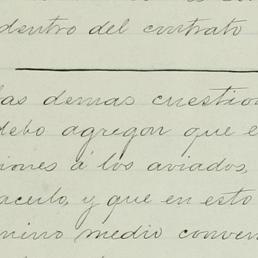 dentro del contrato
las demas cuestion
debo agregar que e
iones á los aviados,
aculo, y que en esto
mino medio conven